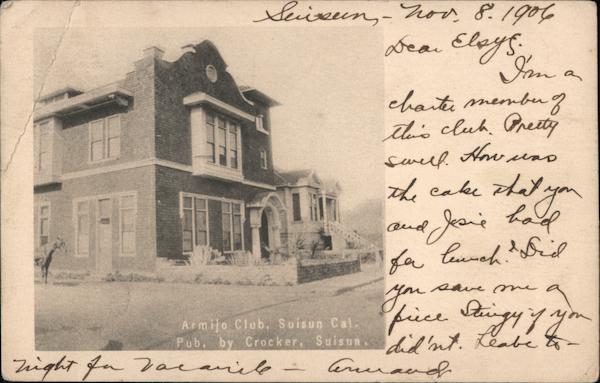 Suisun, - Nov. 8. 1906
Dear Elsye.
I'm a
charter member of
this club. Pretty
swell. How was
the cake that you
and Josie had
for lunch? Did
you save me a
piece Stingy if you
didn't. Leave to-
night for Vacaville - Armand
Armijo Club, Suisun Cal.
Pub. by Crocker, Suisun.